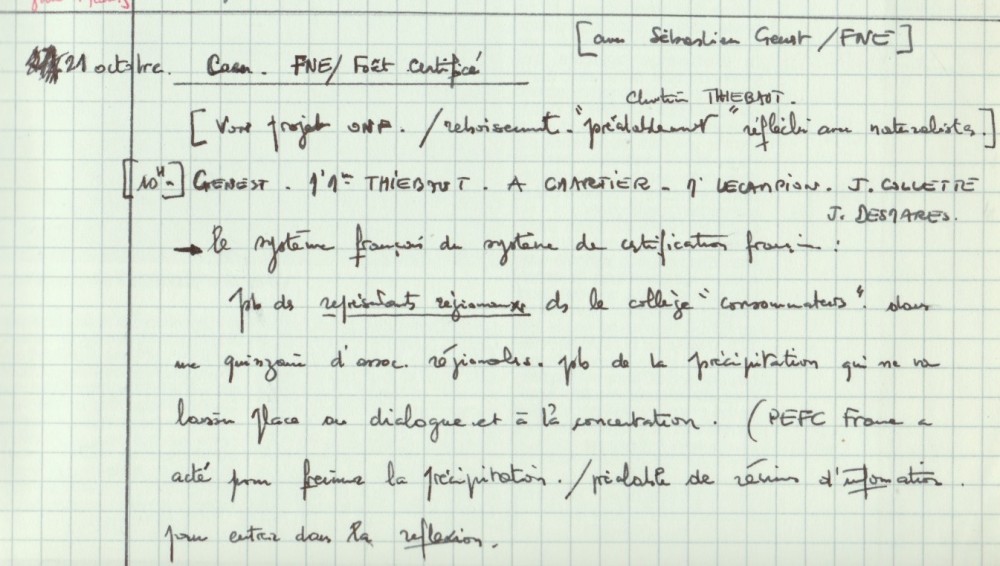 [avec Sébastien Genest / FNE]
21 octobre. Caen. FNE / Forêt certifié
Christian THIEBAUT.
[Voir projet ONF. / reboisement. "préalablement" réfléchi avec naturalistes.]
[10H-] GENEST. THIEBAUT. A CHARTIER. LECAMPION. J. COLLETTE
J. DESMARES.
→ le système français du système de certification français :
pb des représentants régionaux ds le collège "consommateurs". dans
une quinzaine d'assoc. régionales. pb de la précipitation qui ne va
laisser place au dialogue et à la concertation. (PEFC France a
acté pour freiner la précipitation. / préalable de réunions d'information.
pour entrer dans la reflexion.